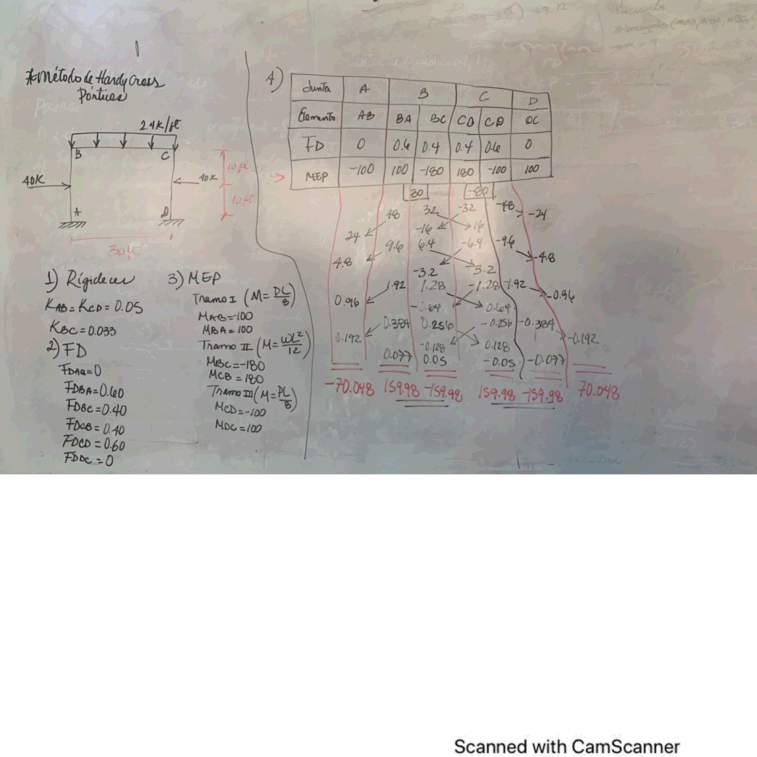 *Método de Hardy Cross
Pórticos
2.4k/ft
B
C
40K
40K
A
D
10ft
10ft
30ft
1) Rigideces
KAB = KCD = 0.05
KBC = 0.033
2) FD
FDAB = 0
FDBA = 0.60
FDBC = 0.40
FDCB = 0.40
FDCD = 0.60
FDDC = 0
3) MEP
Tramo I (M = PL/8)
MAB = -100
MBA = 100
Tramo II (M = WL²/12)
MBC = -180
MCB = 180
Tramo III (M = PL/8)
MCD = -100
MDC = 100
4)
Junta A B C D
Elemento AB BA BC CB CD DC
FD 0 0.6 0.4 0.4 0.6 0
MEP -100 100 -180 180 -100 100
80 -80
48 32 -32 -48 -24
24 -16 16
9.6 6.4 -6.4 -9.6
4.8 -3.2 3.2 -4.8
1.92 1.28 -1.28 -1.92
0.96 -0.64 0.64 -0.96
0.384 0.256 -0.256 -0.384
0.192 -0.128 0.128 -0.192
0.077 0.05 -0.05 -0.077
-70.048 159.98 -159.98 159.98 -159.98 70.048
Scanned with CamScanner